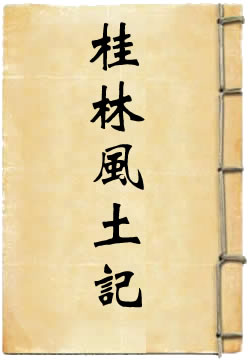 桂林風土記